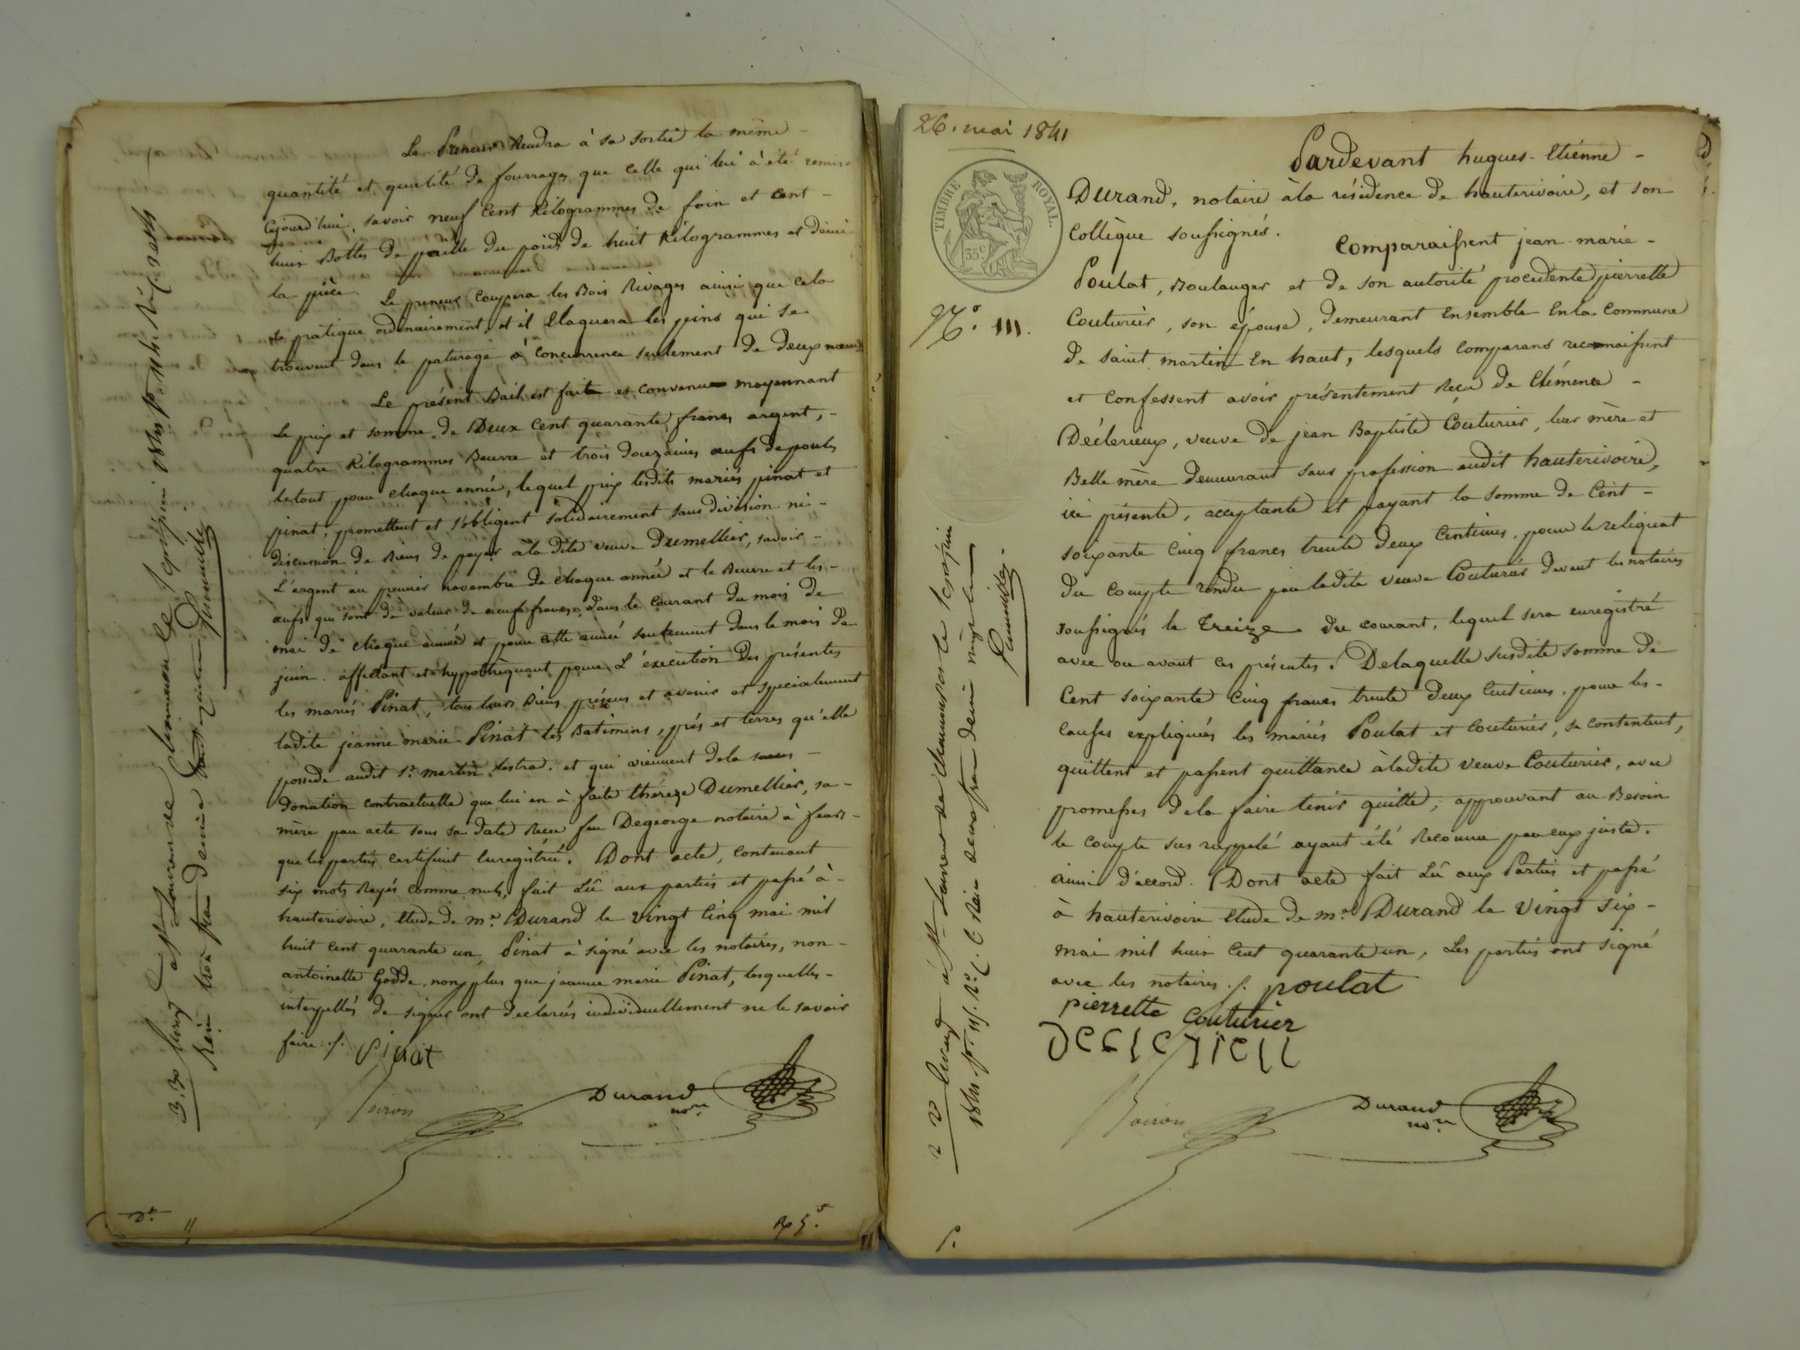 Le Preneur Rendra à sa sortie la même -
quantité et qualité de fourrages que celle qui lui à été remise
cejourd'hui, savoir neuf Cent Kilogrammes de foin et Cent -
huit Bottes de paille du poids de huit Kilogrammes et demi
la pièce. Le preneur Coupera les Bois Rivages ainsi que cela
se pratique ordinairement, et il Elaguera les pins qui se
trouvent dans le paturage à Concurrence seulement de deux nœuds
Le présent Bail est fait et convenu moyennant
Le prix et somme de Deux Cent quarante francs argent, -
quatre Kilogrammes Beurre et trois douzaines œufs de poule,
le tout pour chaque année, lequel prix lesdits mariés pinat et
pinat, promettent et s'obligent solidairement sans division ni -
discussion de Biens de payer à la dite veuve Dumellier, savoir -
L'argent au premier novembre de chaque année et le Beurre et les -
œufs qui sont de valeur de neuf francs, dans le Courant du mois de
mai de chaque année et pour cette année seulement dans le mois de
juin. affectant et hypothèquant pour L'éxécution des présentes
les mariés Pinat, tous leurs Biens présens et avenir et spécialement
ladite jeanne marie Pinat les Batimens, prés et terres qu'elle
possède audit St. martin Lestra. et qui viennent de la
donation contractuelle que lui en à faite théreze Dumellier, sa -
mère par acte sous sa date Reçu feu Degeorge notaire à feurs -
que les parties certifient Enregistrée. Dont acte, contenant
six mots Rayés comme nuls, fait Lû aux parties et passé à -
hauterivoire, étude de me. Durand le vingt Cinq mai mil
huit cent quarante un, Pinat à signé avec les notaires, non -
antoinette Godde, non plus que jeanne marie Pinat, lesquelles -
interpellés de signer ont déclarés individuellement ne le savoir
faire ./. pinat
Durand
nore
26. mai 1841
TIMBRE ROYAL.
35c
No. 111.
Pardevant hugues-Etiénne -
Durand, notaire à la résidence de hauterivoire, et son
Collègue soussignés. Comparaissent jean-marie -
Poulat, Boulanger et de son autorité procédente pierrette
Couturier, son épouse, demeurant Ensemble En la Commune
de saint martin En haut, lesquels Comparans reconnaissent
et Confessent avoir présentement Reçu de Clémence -
Déclerieux, veuve de jean Baptiste Couturier, leur mère et
Belle mère demeurant sans profession audit hauterivoire,
ici présente, acceptante et payant la somme de Cent -
soixante Cinq francs trente deux Centimes, pour le reliquat
du Compte rendu par ladite veuve Couturier devant les notaires
soussignés le Treize du courant, lequel sera enregistré
avec ou avant ces présentes. De laquelle susdite somme de
Cent soixante Cinq francs trente deux Centimes, pour les -
Causes expliquées les mariés Poulat et Couturier, se contentent,
quittent et passent quittance à ladite veuve Couturier, avec
promesses de la faire tenir quitte, approuvant au Besoin
le compte sus rappelé ayant été Reconnu par eux juste.
ainsi d'accord. Dont acte fait Lû aux Parties et passé
à hauterivoire étude de me. Durand le vingt six -
mai mil huit Cent quarante un, Les parties ont signé
avec les notaires ./. poulat
pierrette couturier
Durand
nore